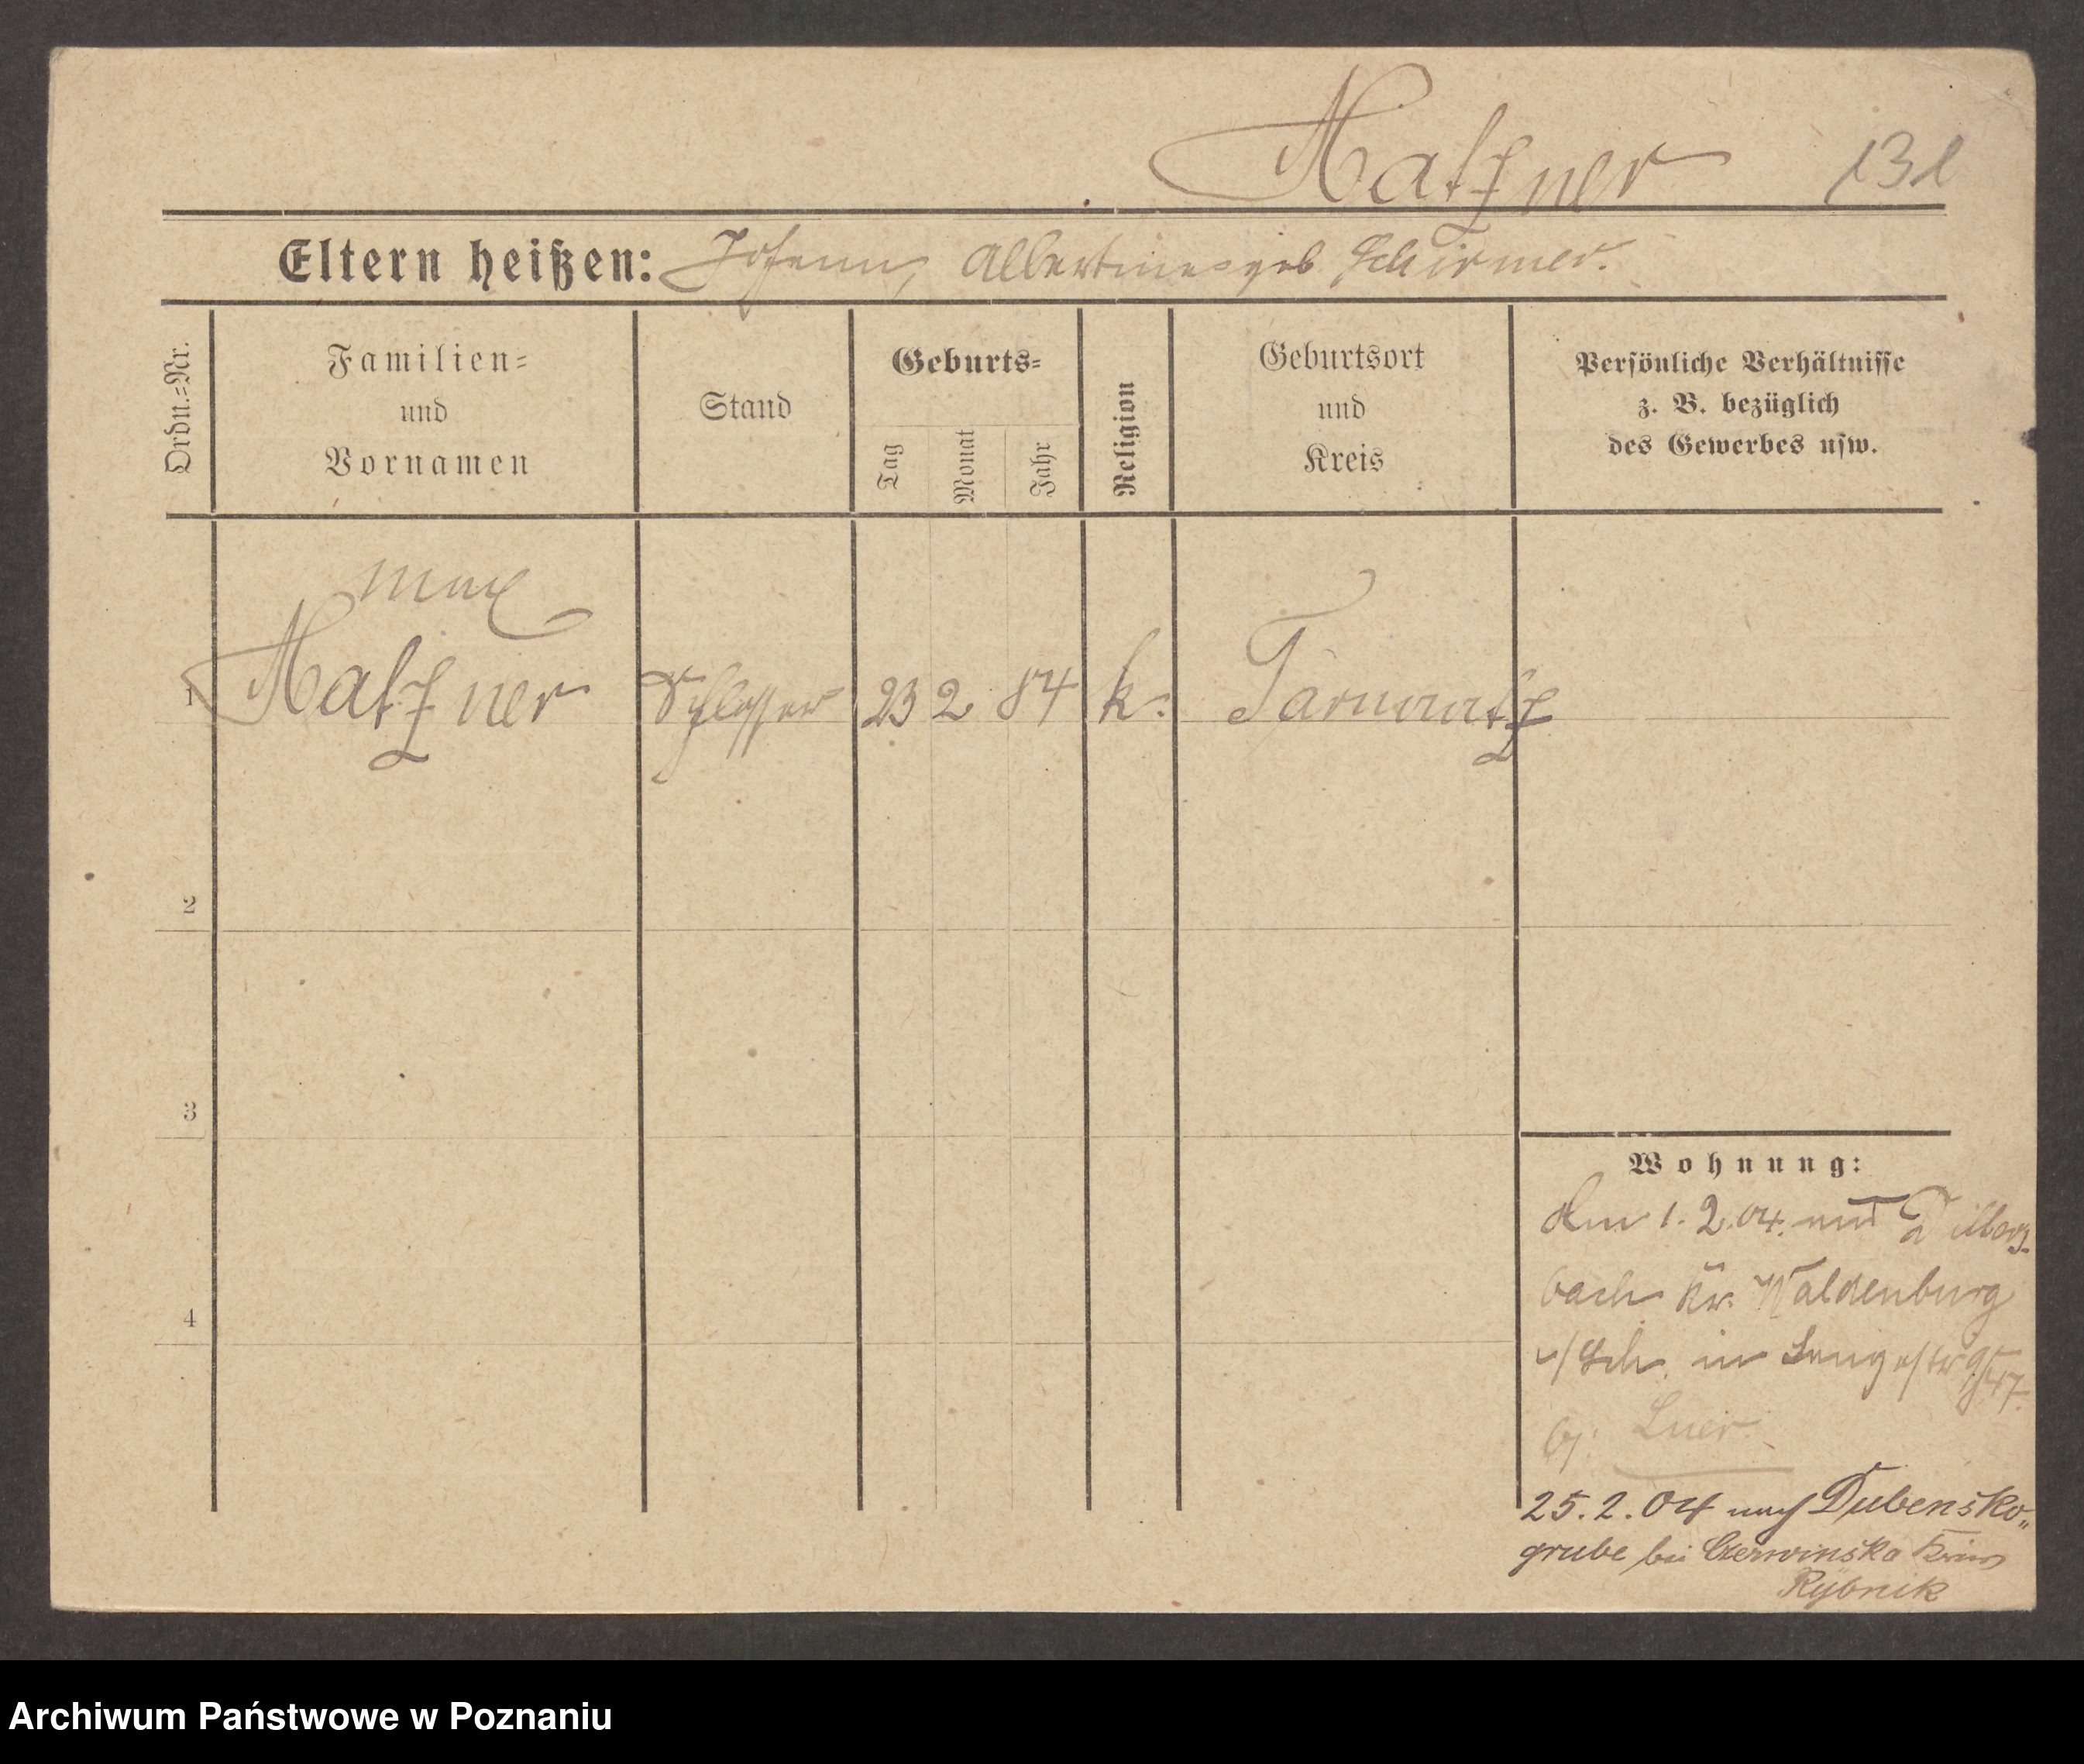 Matzner 131
Eltern heißen: Johann, Albertine geb Schirmer.
Ordn.=Nr.
Familien=
und
Vornamen
Stand
Geburts=
Tag
Monat
Jahr
Religion
Geburtsort
und
Kreis
Persönliche Verhältnisse
z. B. bezüglich
des Gewerbes usw.
Max
1 Matzner Schlosser 23 2 84 k. Tarnowitz
2
3
4
Wohnung:
Am 1. 2. 04. aus Ditters-
bach Kr. Waldenburg
i/Sch. in Langestr 9/47.
bj. Luer.
25. 2. 04 nach Dubensko„
grube bei Czerwinska Kreis
Rybnik
Archiwum Państwowe w Poznaniu